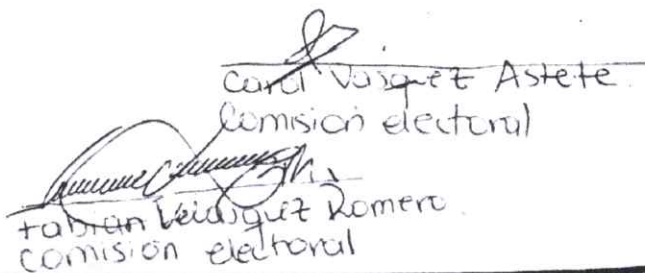 Carol Vasquez Astete
Comision electoral
Fabian Velasquez Romero
Comision electoral